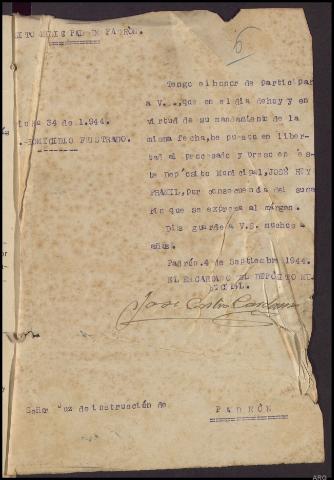 6
SITO MUNICIPAL DE PADRÓN.
Tengo el honor de participar
a V.S., que en el dia de hoy y en
virtud de su mandamiento de la
misma fecha, he puesto en liber-
tad al procesado y preso en és-
te Depósito Municipal, JOSÉ REY
por consecuencia del suma-
rio que se expresa al margen.
34 de 1.944.
HOMICIDIO FRUSTRADO.
Dis guarde a V.S. muchos
años.
Padrón, 4 de Septiembre 1944.
EL ENCARGADO DEL DEPÓSITO MU-
NICIPAL.
José Castro
Señor Juez de instrucción de
PADRÓN
ARG